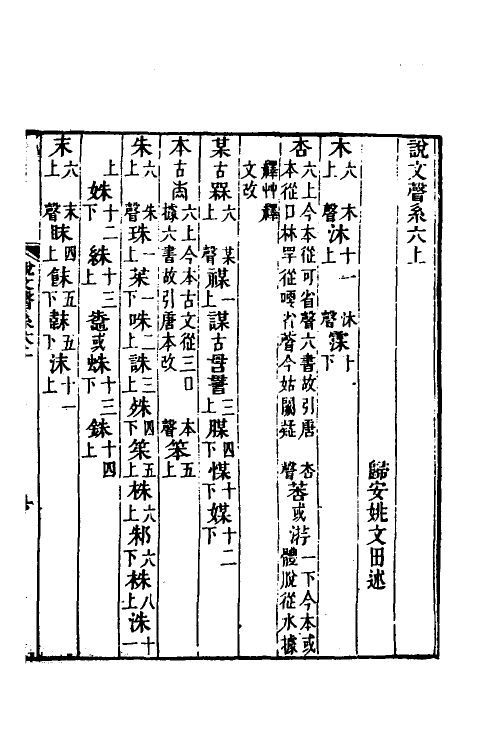 說文聲系六上
歸安姚文田述
木六上 木聲沐十一上 沐聲霂十一下
杏六上今本從可省聲六書故引唐本從口林罕從哽省聲今姑闕疑 杏聲莕或荇一下今本或體脫從水據
釋艸釋文改
某古槑六上 某聲禖一上謀古𠰔𧦥三上腜四下惎十下媒十二下
本古𣎴六上今本古文從三口據六書故引唐本改 本聲笨五上
朱六上 朱聲珠一上茱一下咮二上誅三上殊四下笨五上株六上邾六下袾八上洙十一
上姝十二下絑十三上鼄或蛛十三下銖十四上
末六上 末聲眛四上餗五下韎五下沫十一上